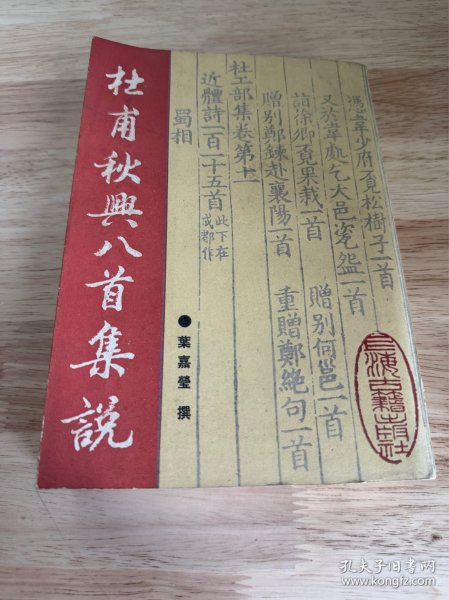 杜甫秋興八首集說
●葉嘉瑩 撰
憑韋少府覓松樹子一首
又於韋處乞大邑瓷盌一首
詣徐卿覓果栽一首 贈別何邕一首
贈別鄭鍊赴襄陽一首 重贈鄭絕句一首
杜工部集卷第十一
近體詩一百一十五首 此下在
成都作
蜀相
上海古籍出版社
孔夫子旧书网
www.kongfz.com